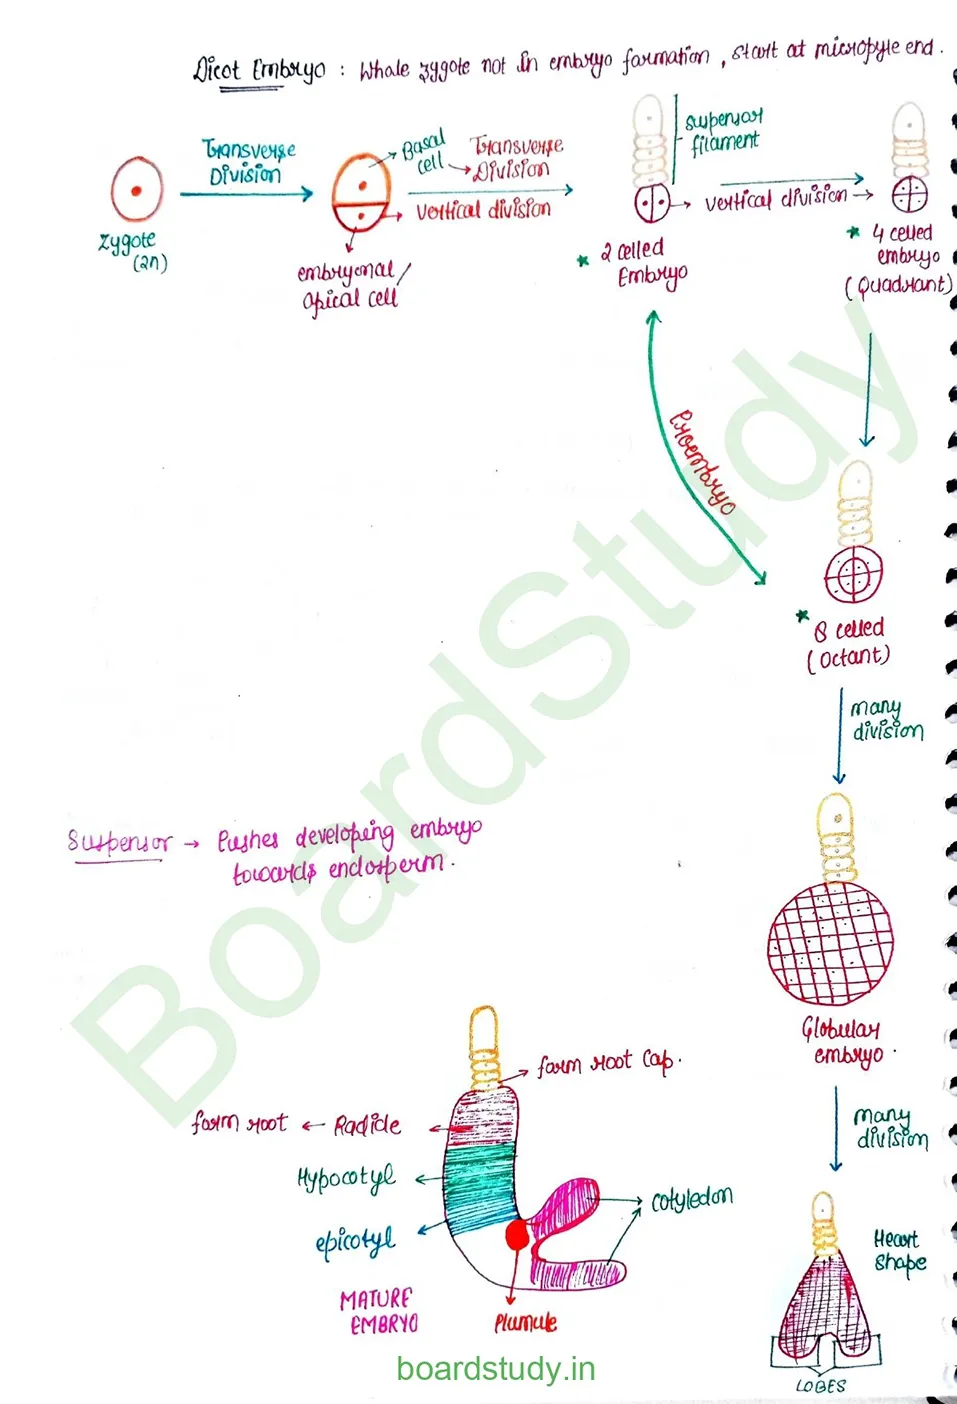 Dicot Embryo : Whole zygote not in embryo formation, start at micropyle end.
Transverse
Division
Basal
cell
Transverse
Division
Vertical division
Zygote
(2n)
embryonal/
apical cell
suspensor
filament
vertical division
★ 2 celled
Embryo
★ 4 celled
embryo
(Quadrant)
Proembryo
★ 8 celled
(octant)
many
division
Suspensor → Pushes developing embryo
towards endosperm.
Globular
embryo.
many
division
form root cap.
form root ← Radicle
Hypocotyl
epicotyl
cotyledon
Plumule
MATURE
EMBRYO
Heart
shape
LOBES
BoardStudy
boardstudy.in